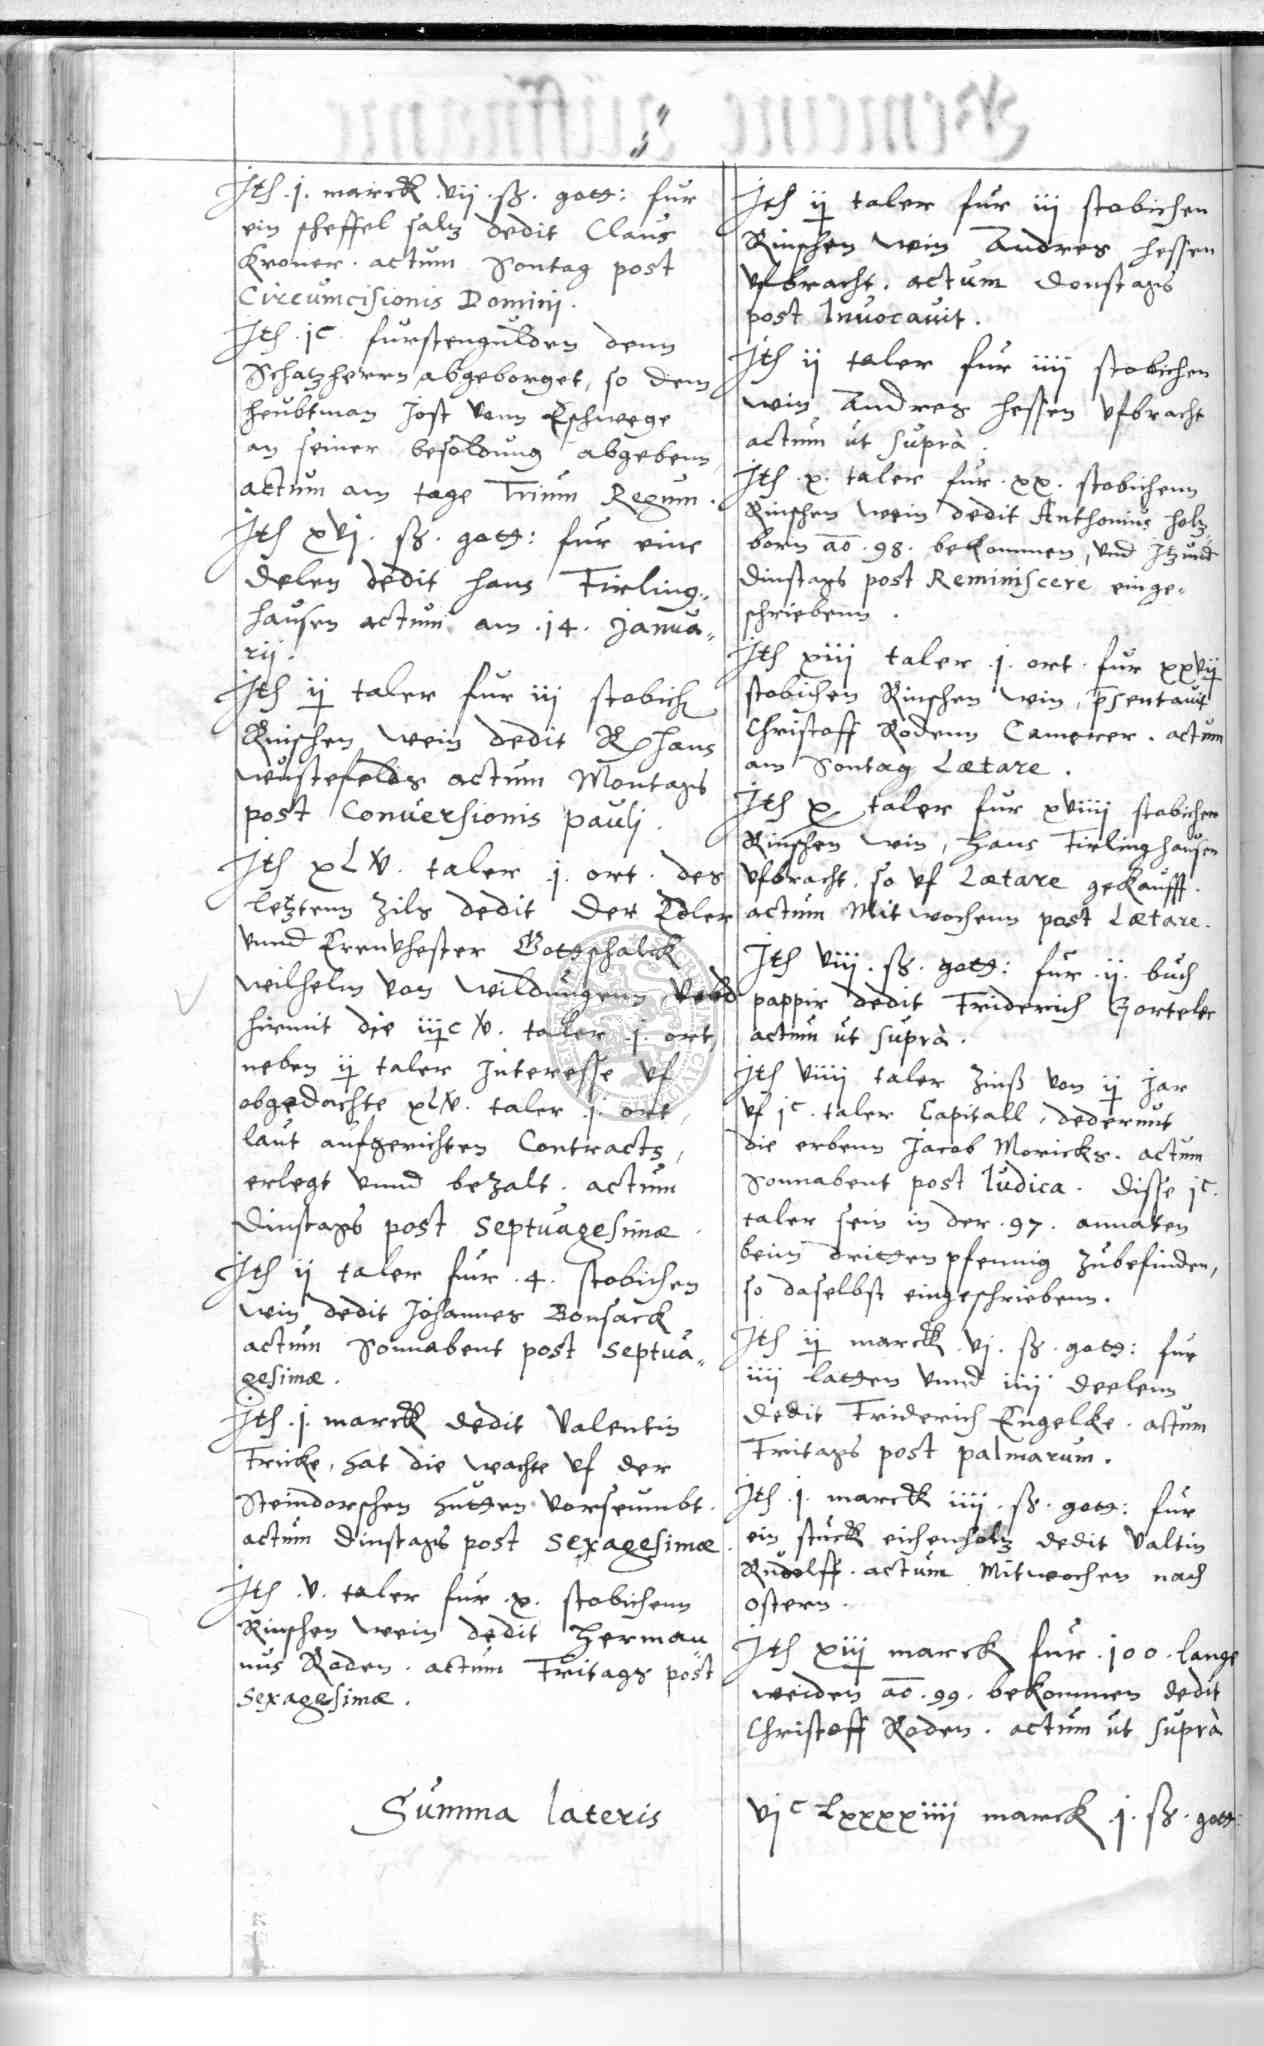 Jtem .j. marck .vij. ß. gott: fur
ein scheffel saltz dedit Claus
Kroner. actum Sontag post
Circumcisionis Dominj.
Jtem .jc. furstengulden denn
Schatzherrn abgeborget, so dem
heubtman Jost vonn Eschwege
an seiner besoldung abgebenn
actum am tage Trium Regum.
Jtem xvj. ß. gott: fur eine
delen dedit hans Firling„
hausen actum am .14. Janua„
rij.
Jtem ij taler fur iij stobich
Rinschen wein dedit R hans
Wustefelds actum Montags
post Conuersionis paulj.
Jtem xLv. taler .j. ort. des
letztenn Zils dedit Der Edler
vnnd Erenvhester Gottschalck
wilhelm von wildungenn, vnd
hirmit die iijc v. taler .j. ort
neben ij taler Jnteresse vf
obgedachte xLv. taler .j. ort,
laut aufgerichten Contracts,
erlegt vnnd bezalt. actum
Dinstags post Septuagesimæ.
Jtem ij taler fur .4. stobichen
win dedit Johannes Bonsack
actum Sonnabent post Septua„
gesimæ.
Jtem .j. marck dedit Valentin
Fricke, hat die wachte vf der
Steindorschen hutten vorseumbt.
actum Dinstags post Sexagesimæ.
Jtem .v. taler fur .x. stobichenn
Rinschen wein dedit Herman
nus Roden. actum Fritags post
Sexagesimæ.
Jtem ij taler fur iij stobichen
Rinschen win Andres hessen
vfbracht. actum Donstags
post Inuocauit.
Jtem ij taler fur iiij stobichen
win Andres hessen vfbracht
actum ut suprà.
Jtem .x. taler fur .xx. stobichenn
Rinschen wein dedit Anthonius holtz„
born ao .98. bekommen, vnd Jtzund
Dinstags post Reminiscere einge„
schriebenn.
Jtem xiij taler .j. ort fur xxvij
stobichen Rinschen win, psentauit
Christoff Rodenn Camerer. actum
am Sontag Lætare.
Jtem x taler fur xviiij stobichen
Rinschen win, Hans Firlinghausen
vfbracht. so vf Lætare gekaufft.
actum Mitwochenn post Lætare.
Jtem viij. ß. gott: fur .ij. buch
pappir dedit Friderich Gorteler
actum ut suprà.
Jtem viiij taler Zinß von ij Jar
vf jc. taler Capitall, dederunt
die erbenn Jacob Moricks. actum
Sonnabent post Iudica. Disse jc.
taler sein in der .97. annaten
beim dritten pfennig zubefinden,
so daselbst eingeschriebenn.
Jtem ij marck .vj. ß. gott: fur
iiij latten vnnd iiij deelenn
dedit Friderich Engelke. actum
Fritags post palmarum.
Jtem .j. marck iiij. ß. gott: fur
ein stuck eichenholtz dedit Valtin
Rudolff. actum Mitwochen nach
ostern.
Jtem xiij marck fur .100. lange
weiden ao .99. bekommen dedit
Christoff Roden. actum ut suprà
Summa lateris vjc Lxxxxiiij marck .j. ß. gott: